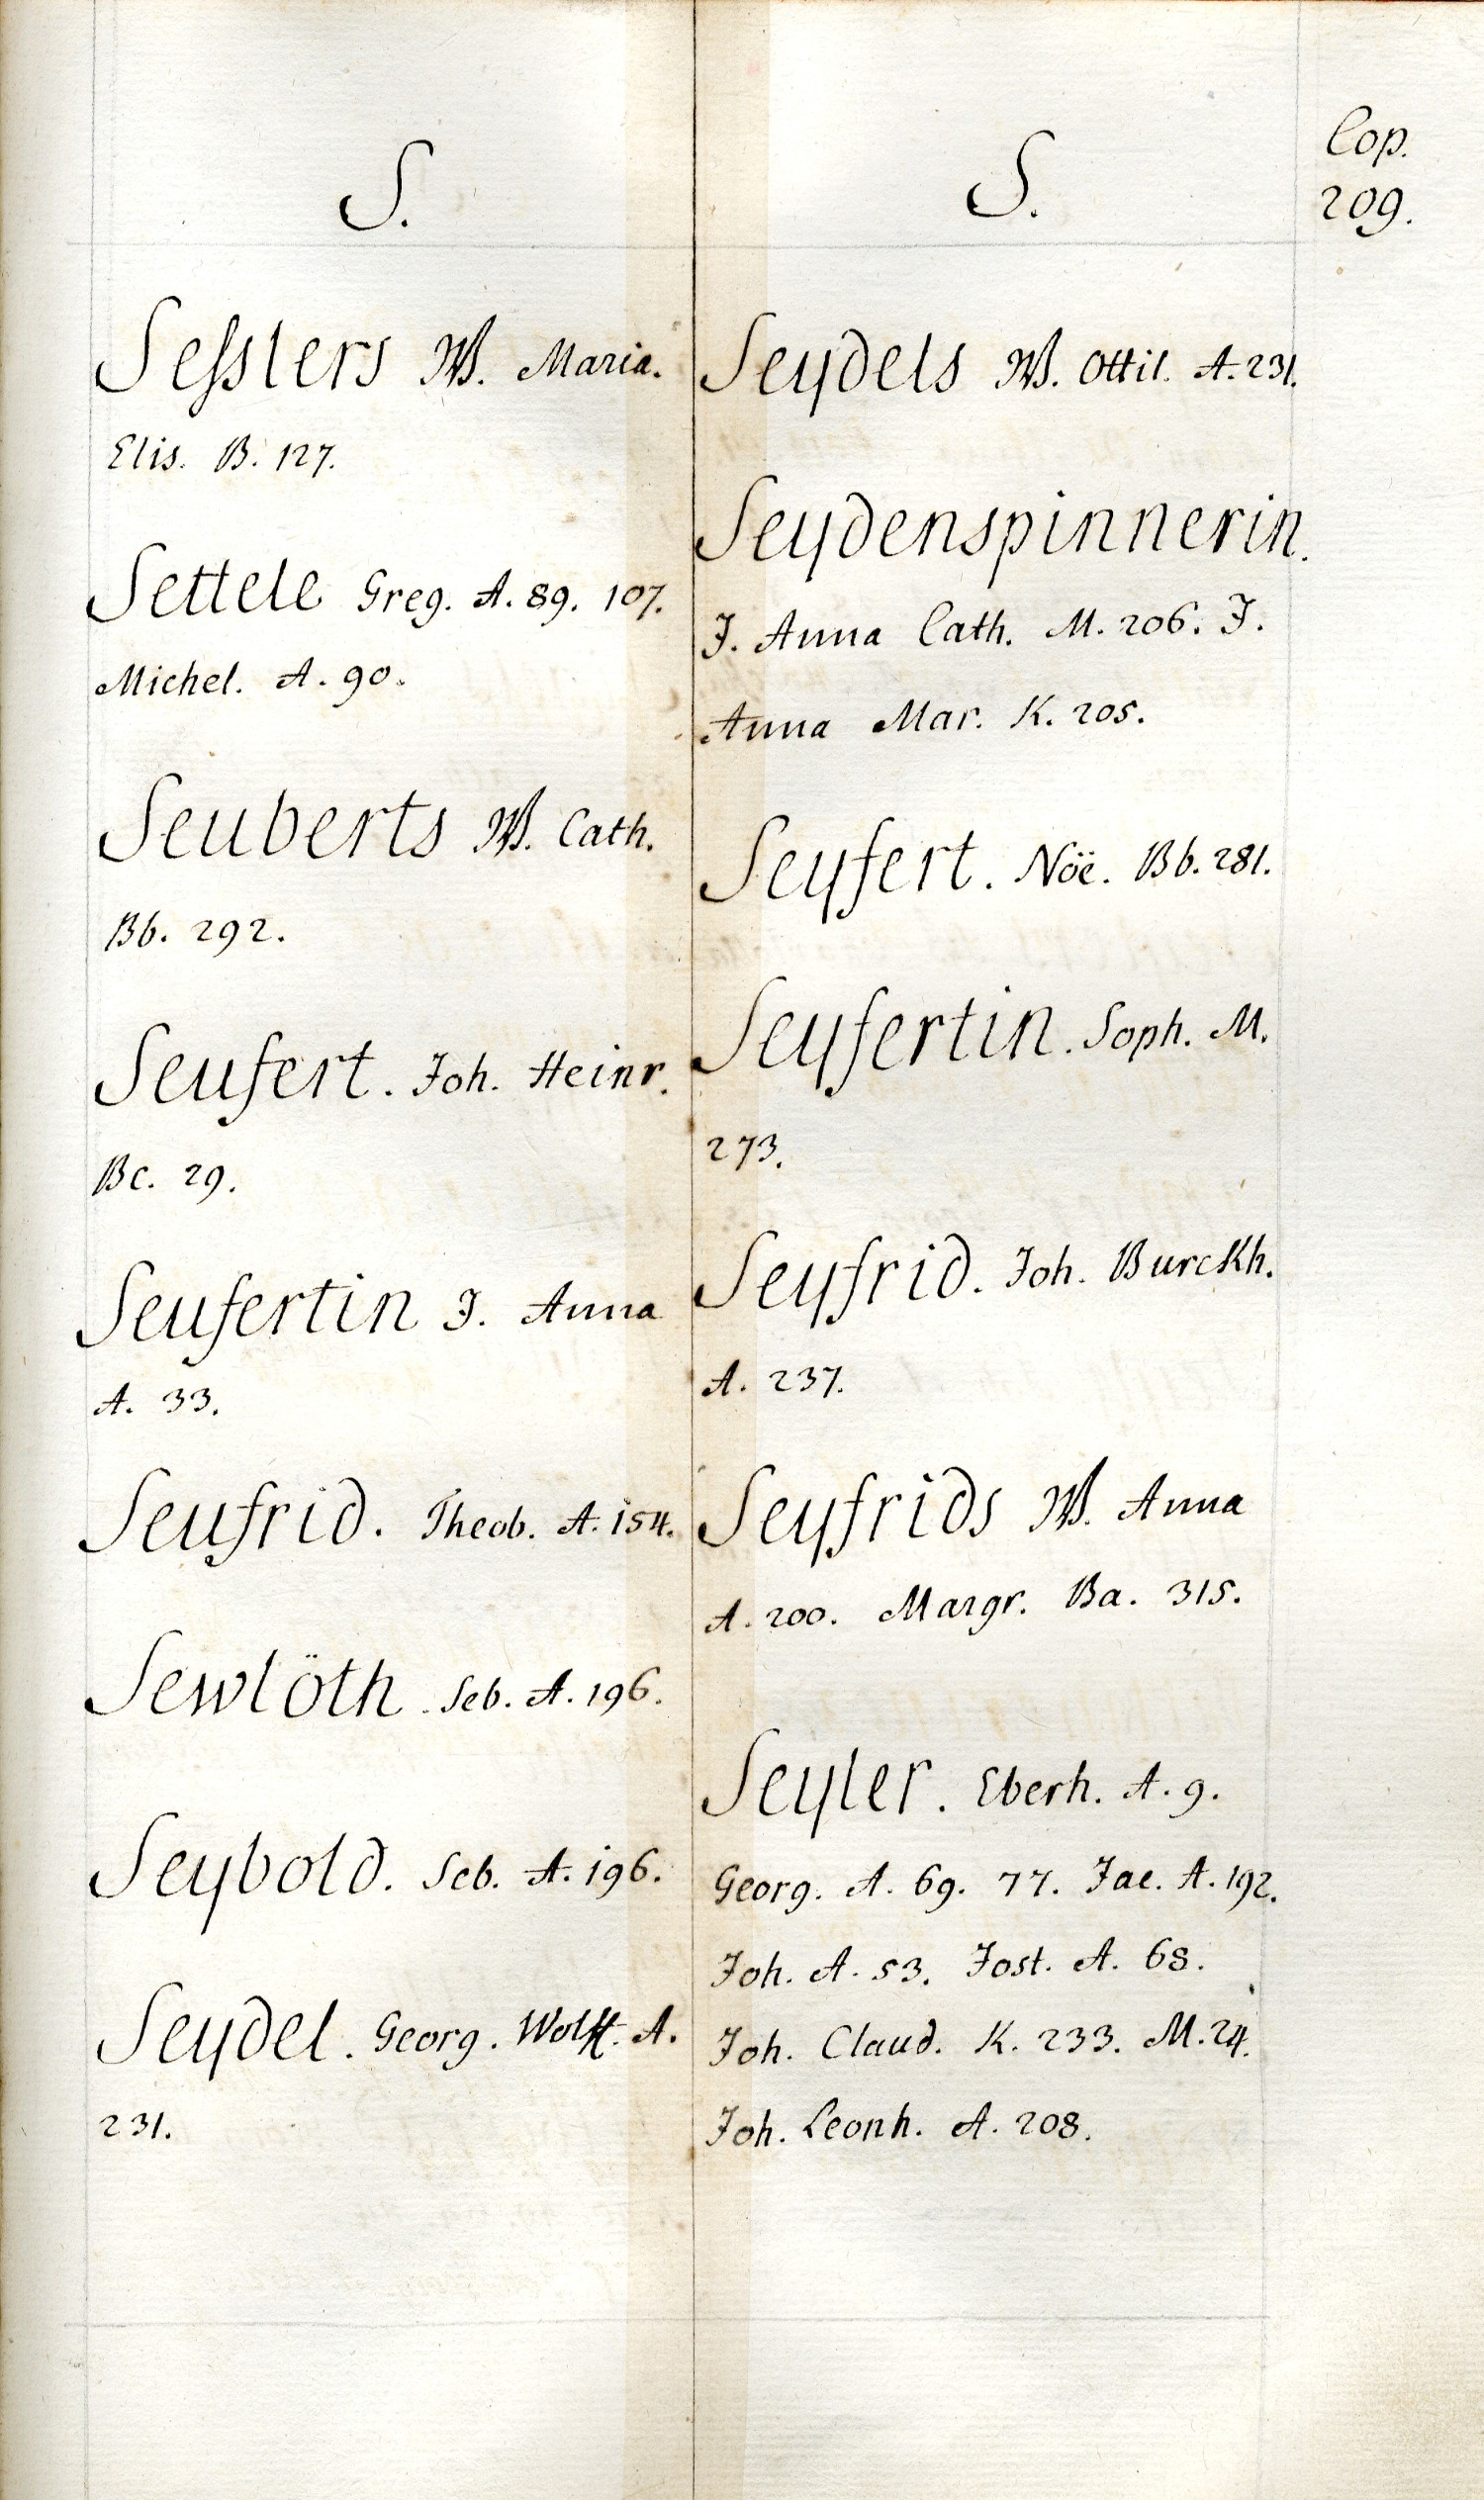 S.
Seſslers W. Maria.
Elis. B. 127.
Settele Greg. A. 89. 107.
Michel. A. 90.
Seuberts W. Cath.
Bb. 292.
Seufert. Joh. Heinr.
Bc. 29.
Seufertin J. Anna
A. 33.
Seufrid. Theob. A. 154.
Sewlöth. Seb. A. 196.
Seybold. Seb. A. 196.
Seydel. Georg. Wolff. A.
231.
S.
Seydels W. Ottil. A. 231.
Seydenspinnerin.
J. Anna Cath. M. 206. J.
Anna Mar. K. 205.
Seyfert. Nöe. Bb. 281.
Seyfertin. Soph. M.
273.
Seyfrid. Joh. Burckh.
A. 237.
Seyfrids W. Anna
A. 200. Margr. Ba. 315.
Seyler. Eberh. A. 9.
Georg. A. 69. 77. Jac. A. 192.
Joh. A. 53. Jost. A. 68.
Joh. Claud. K. 233. M. 24.
Joh. Leonh. A. 208.
Cop.
209.